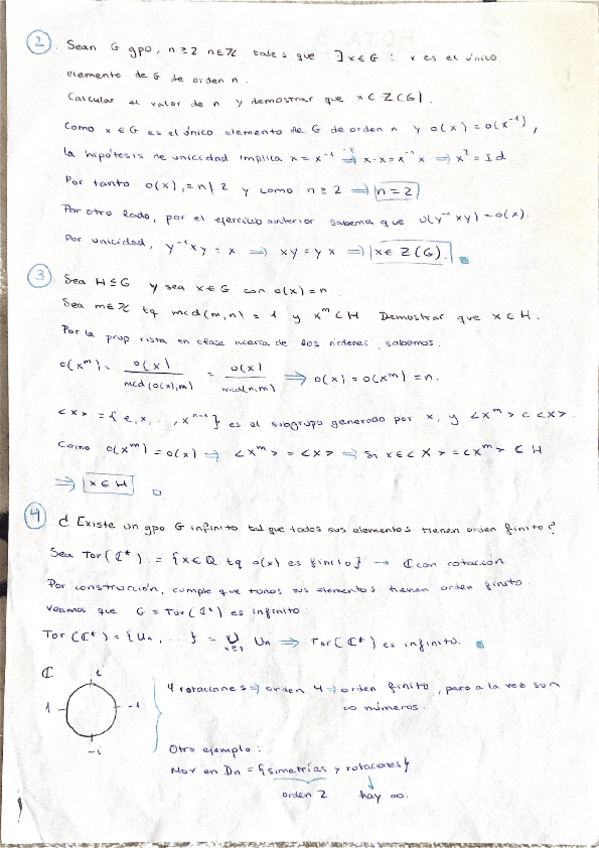 2 Sean G gpo, n ≥ 2 n∈ℤ tales que ∃x∈G : x es el único
elemento de G de orden n.
Calcular el valor de n y demostrar que x ∈ Z(G).
Como x∈G es el único elemento de G de orden n y o(x) = o(x⁻¹),
la hipótesis de unicidad implica x = x⁻¹ ⇒ x·x = x⁻¹x ⇒ x² = Id
Por tanto o(x) = n | 2 y como n ≥ 2 ⇒ n = 2
Por otro lado, por el ejercicio anterior sabemos que o(y⁻¹xy) = o(x).
Por unicidad, y⁻¹xy = x ⇒ xy = yx ⇒ x∈Z(G).
3 Sea H ≤ G y sea x∈G con o(x) = n.
Sea m∈ℤ tq mcd(m,n) = 1 y x^m ∈ H Demostrar que x∈H.
Por la prop vista en clase acerca de los órdenes, sabemos.
o(x^m) = o(x) / mcd(o(x),m) = o(x) / mcd(n,m) ⇒ o(x) = o(x^m) = n.
<x> = {e, x, ..., x^{n-1}} es el subgrupo generado por x, y <x^m> ⊂ <x>.
Como o(x^m) = o(x) ⇒ <x^m> = <x> ⇒ x∈<x> = <x^m> ⊂ H
⇒ x∈H
4 ¿Existe un gpo G infinito tal que todos sus elementos tienen orden finito?
Sea Tor(ℂ*) = {x∈ tq o(x) es finito} → ℂ con rotación
Por construcción, cumple que todos sus elementos tienen orden finito.
Veamos que G = Tor(ℂ*) es infinito
Tor(ℂ*) = {Un, ... } = ∪ n≥1 Un ⇒ Tor(ℂ*) es infinito.
ℂ i
1 -1
-i
4 rotaciones ⇒ orden 4 ⇒ orden finito, pero a la vez son
∞ números.
Otro ejemplo:
Mov en Dn = {simetrías y rotaciones}
orden 2 hay ∞.